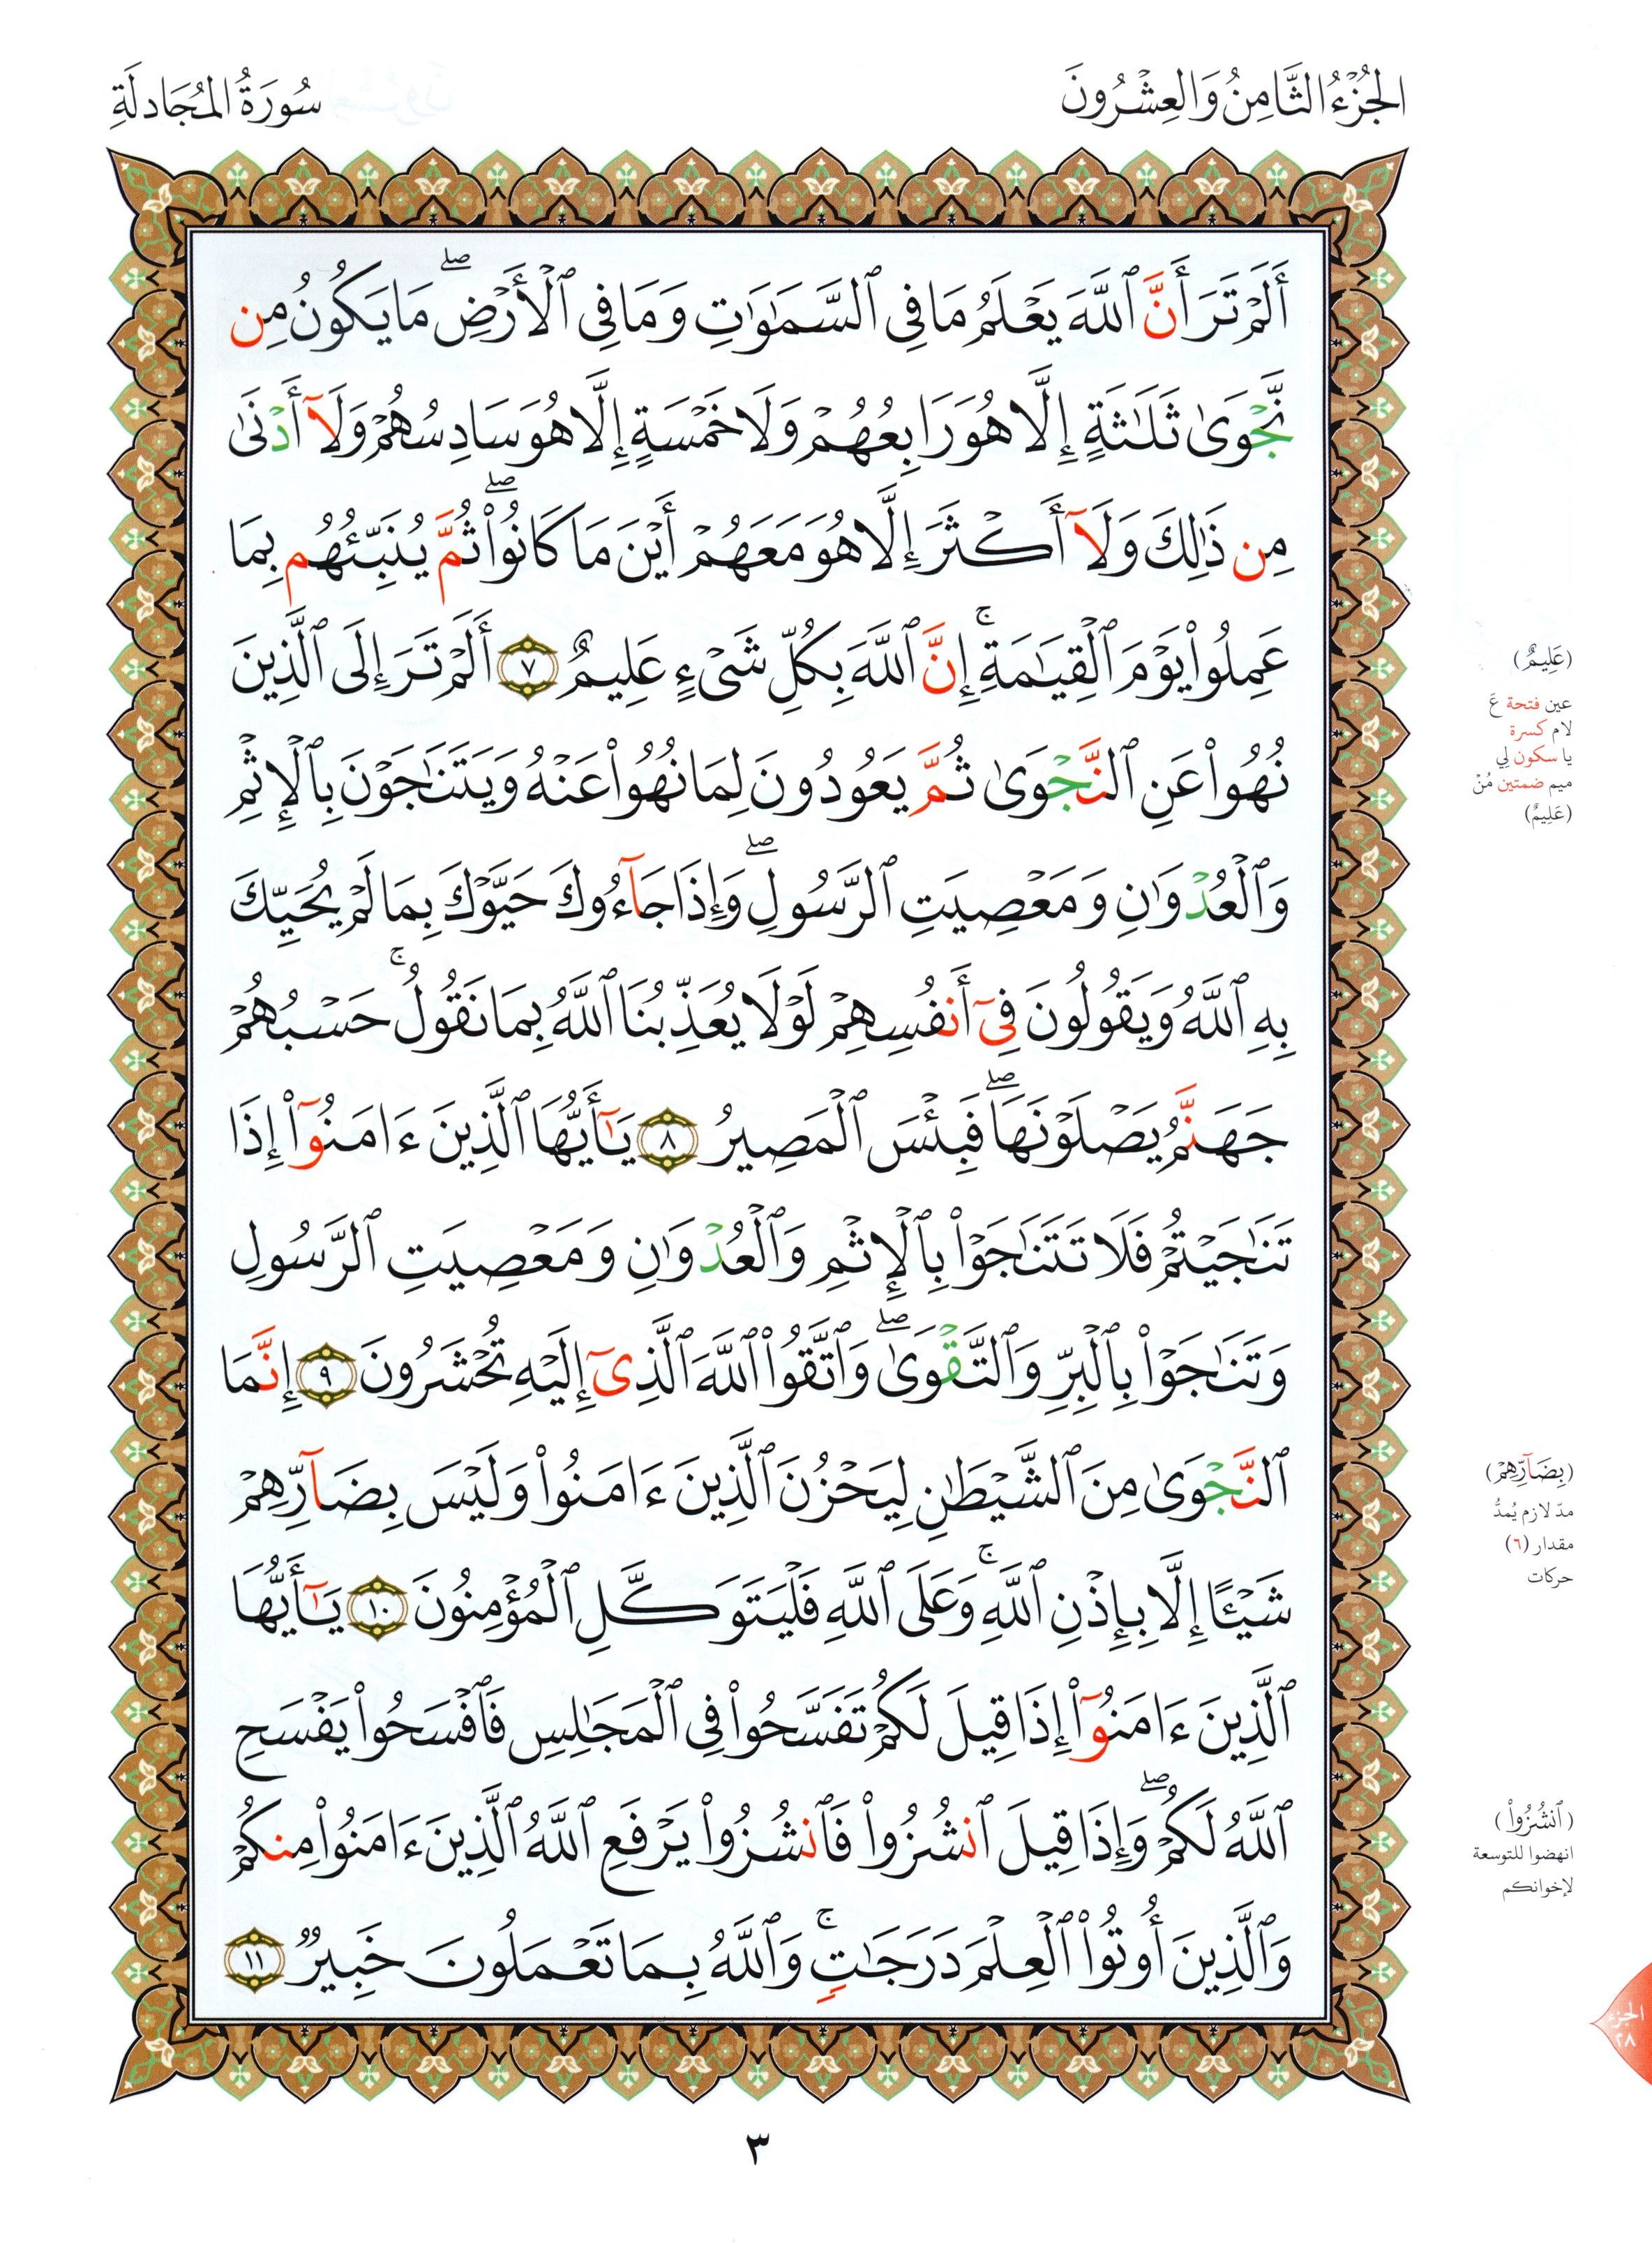 الجُزْءُ الثَّامِنُ وَالعِشْرُونَ
سُورَةُ المُجَادلَةِ
أَلَمْ تَرَ أَنَّ ٱللَّهَ يَعْلَمُ مَا فِى ٱلسَّمَٰوَٰتِ وَمَا فِى ٱلْأَرْضِ ۖ مَا يَكُونُ مِن
نَّجْوَىٰ ثَلَٰثَةٍ إِلَّا هُوَ رَابِعُهُمْ وَلَا خَمْسَةٍ إِلَّا هُوَ سَادِسُهُمْ وَلَآ أَدْنَىٰ
مِن ذَٰلِكَ وَلَآ أَكْثَرَ إِلَّا هُوَ مَعَهُمْ أَيْنَ مَا كَانُوا۟ ۖ ثُمَّ يُنَبِّئُهُم بِمَا
عَمِلُوا۟ يَوْمَ ٱلْقِيَٰمَةِ ۚ إِنَّ ٱللَّهَ بِكُلِّ شَىْءٍ عَلِيمٌ ٧ أَلَمْ تَرَ إِلَى ٱلَّذِينَ
نُهُوا۟ عَنِ ٱلنَّجْوَىٰ ثُمَّ يَعُودُونَ لِمَا نُهُوا۟ عَنْهُ وَيَتَنَٰجَوْنَ بِٱلْإِثْمِ
وَٱلْعُدْوَٰنِ وَمَعْصِيَتِ ٱلرَّسُولِ ۖ وَإِذَا جَآءُوكَ حَيَّوْكَ بِمَا لَمْ يُحَيِّكَ
بِهِ ٱللَّهُ وَيَقُولُونَ فِىٓ أَنفُسِهِمْ لَوْلَا يُعَذِّبُنَا ٱللَّهُ بِمَا نَقُولُ ۚ حَسْبُهُمْ
جَهَنَّمُ يَصْلَوْنَهَا ۖ فَبِئْسَ ٱلْمَصِيرُ ٨ يَٰٓأَيُّهَا ٱلَّذِينَ ءَامَنُوٓا۟ إِذَا
تَنَٰجَيْتُمْ فَلَا تَتَنَٰجَوْا۟ بِٱلْإِثْمِ وَٱلْعُدْوَٰنِ وَمَعْصِيَتِ ٱلرَّسُولِ
وَتَنَٰجَوْا۟ بِٱلْبِرِّ وَٱلتَّقْوَىٰ ۖ وَٱتَّقُوا۟ ٱللَّهَ ٱلَّذِىٓ إِلَيْهِ تُحْشَرُونَ ٩ إِنَّمَا
ٱلنَّجْوَىٰ مِنَ ٱلشَّيْطَٰنِ لِيَحْزُنَ ٱلَّذِينَ ءَامَنُوا۟ وَلَيْسَ بِضَآرِّهِمْ
شَيْـًٔا إِلَّا بِإِذْنِ ٱللَّهِ ۚ وَعَلَى ٱللَّهِ فَلْيَتَوَكَّلِ ٱلْمُؤْمِنُونَ ١٠ يَٰٓأَيُّهَا
ٱلَّذِينَ ءَامَنُوٓا۟ إِذَا قِيلَ لَكُمْ تَفَسَّحُوا۟ فِى ٱلْمَجَٰلِسِ فَٱفْسَحُوا۟ يَفْسَحِ
ٱللَّهُ لَكُمْ ۖ وَإِذَا قِيلَ ٱنشُزُوا۟ فَٱنشُزُوا۟ يَرْفَعِ ٱللَّهُ ٱلَّذِينَ ءَامَنُوا۟ مِنكُمْ
وَٱلَّذِينَ أُوتُوا۟ ٱلْعِلْمَ دَرَجَٰتٍ ۚ وَٱللَّهُ بِمَا تَعْمَلُونَ خَبِيرٌ ١١
(عَلِيمٌ)
عين فتحة عَ
لام كسرة
يا سكون لِي
ميم ضمتين مُنْ
(عَلِيمٌ)
(بِضَآرِّهِمْ)
مدّ لازم يُمدُّ
مقدار (٦)
حركات
(ٱنشُزُوا۟)
انهضوا للتوسعة
لإخوانكم
الجزء
٢٨
٣